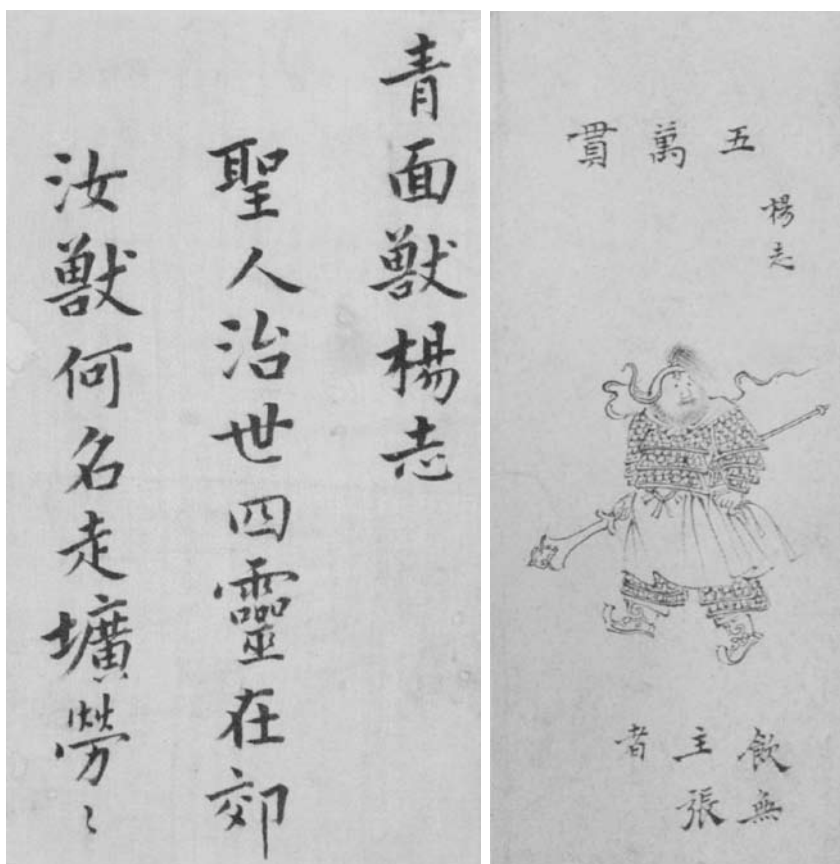 青面獸楊志
聖人治世四靈在郊
汝獸何名走壙勞〻
五萬貫
楊志
飲無
主張
者